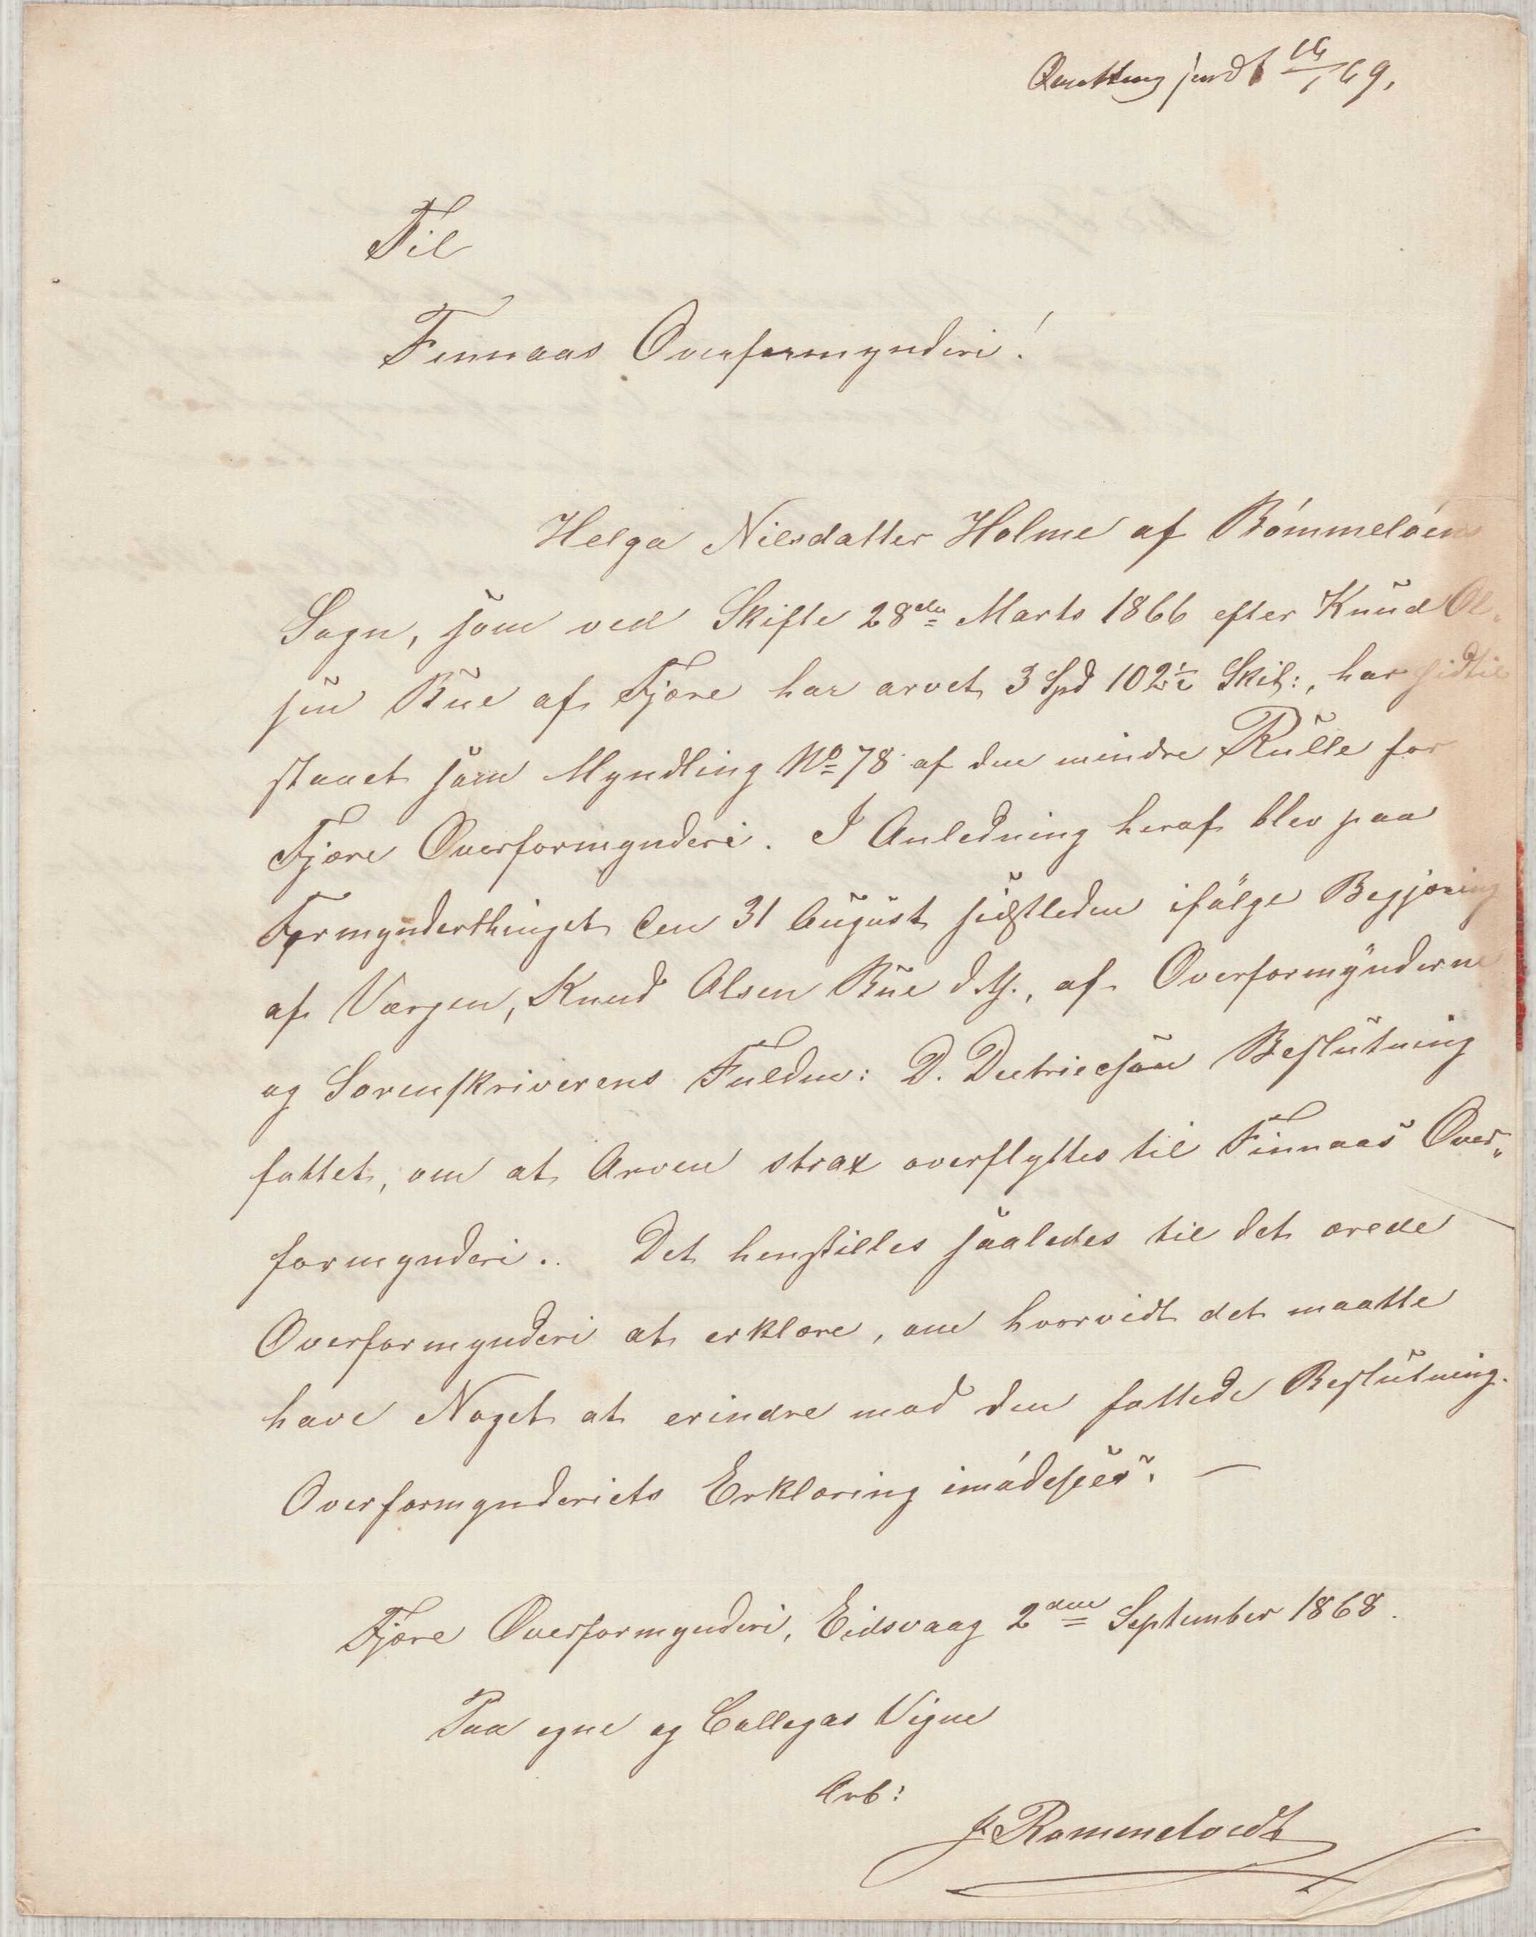 Qvittering sendt 16/1 69.
Til
Finnaas Overformynderi!
Helga Nilsdatter Holme af Bømmeløens
Sogn, som ved Skifte 28de Marts 1866 efter Knud Ol-
sen Bue af Fjære har arvet 3 Spd 102½ Skil:, har hidtil
staaet som Myndling No 78 af den mindre Rulle for
Fjære Overformynderi. I Anledning heraf blev paa
Formynderthinget den 31 August sidstleden ifølge Begjæring
af Værgen, Knud Olsen Bue d. y., af Overformynderne
og Sorenskriverens Fuldm: D. Dietrichson Beslutning
fattet, om at Arven strax overflyttes til Finnaas Over-
formynderi. Det henstilles saaledes til det ærede
Overformynderi at erklære, om hvorvidt det maatte
have Noget at erindre mod den fattede Beslutning.
Overformynderiets Erklæring imødesees. —
Fjære Overformynderi, Eidsvaag 2den September 1868.
Paa egne og Collegas Vegne
Ærb:
J. Rommetvedt